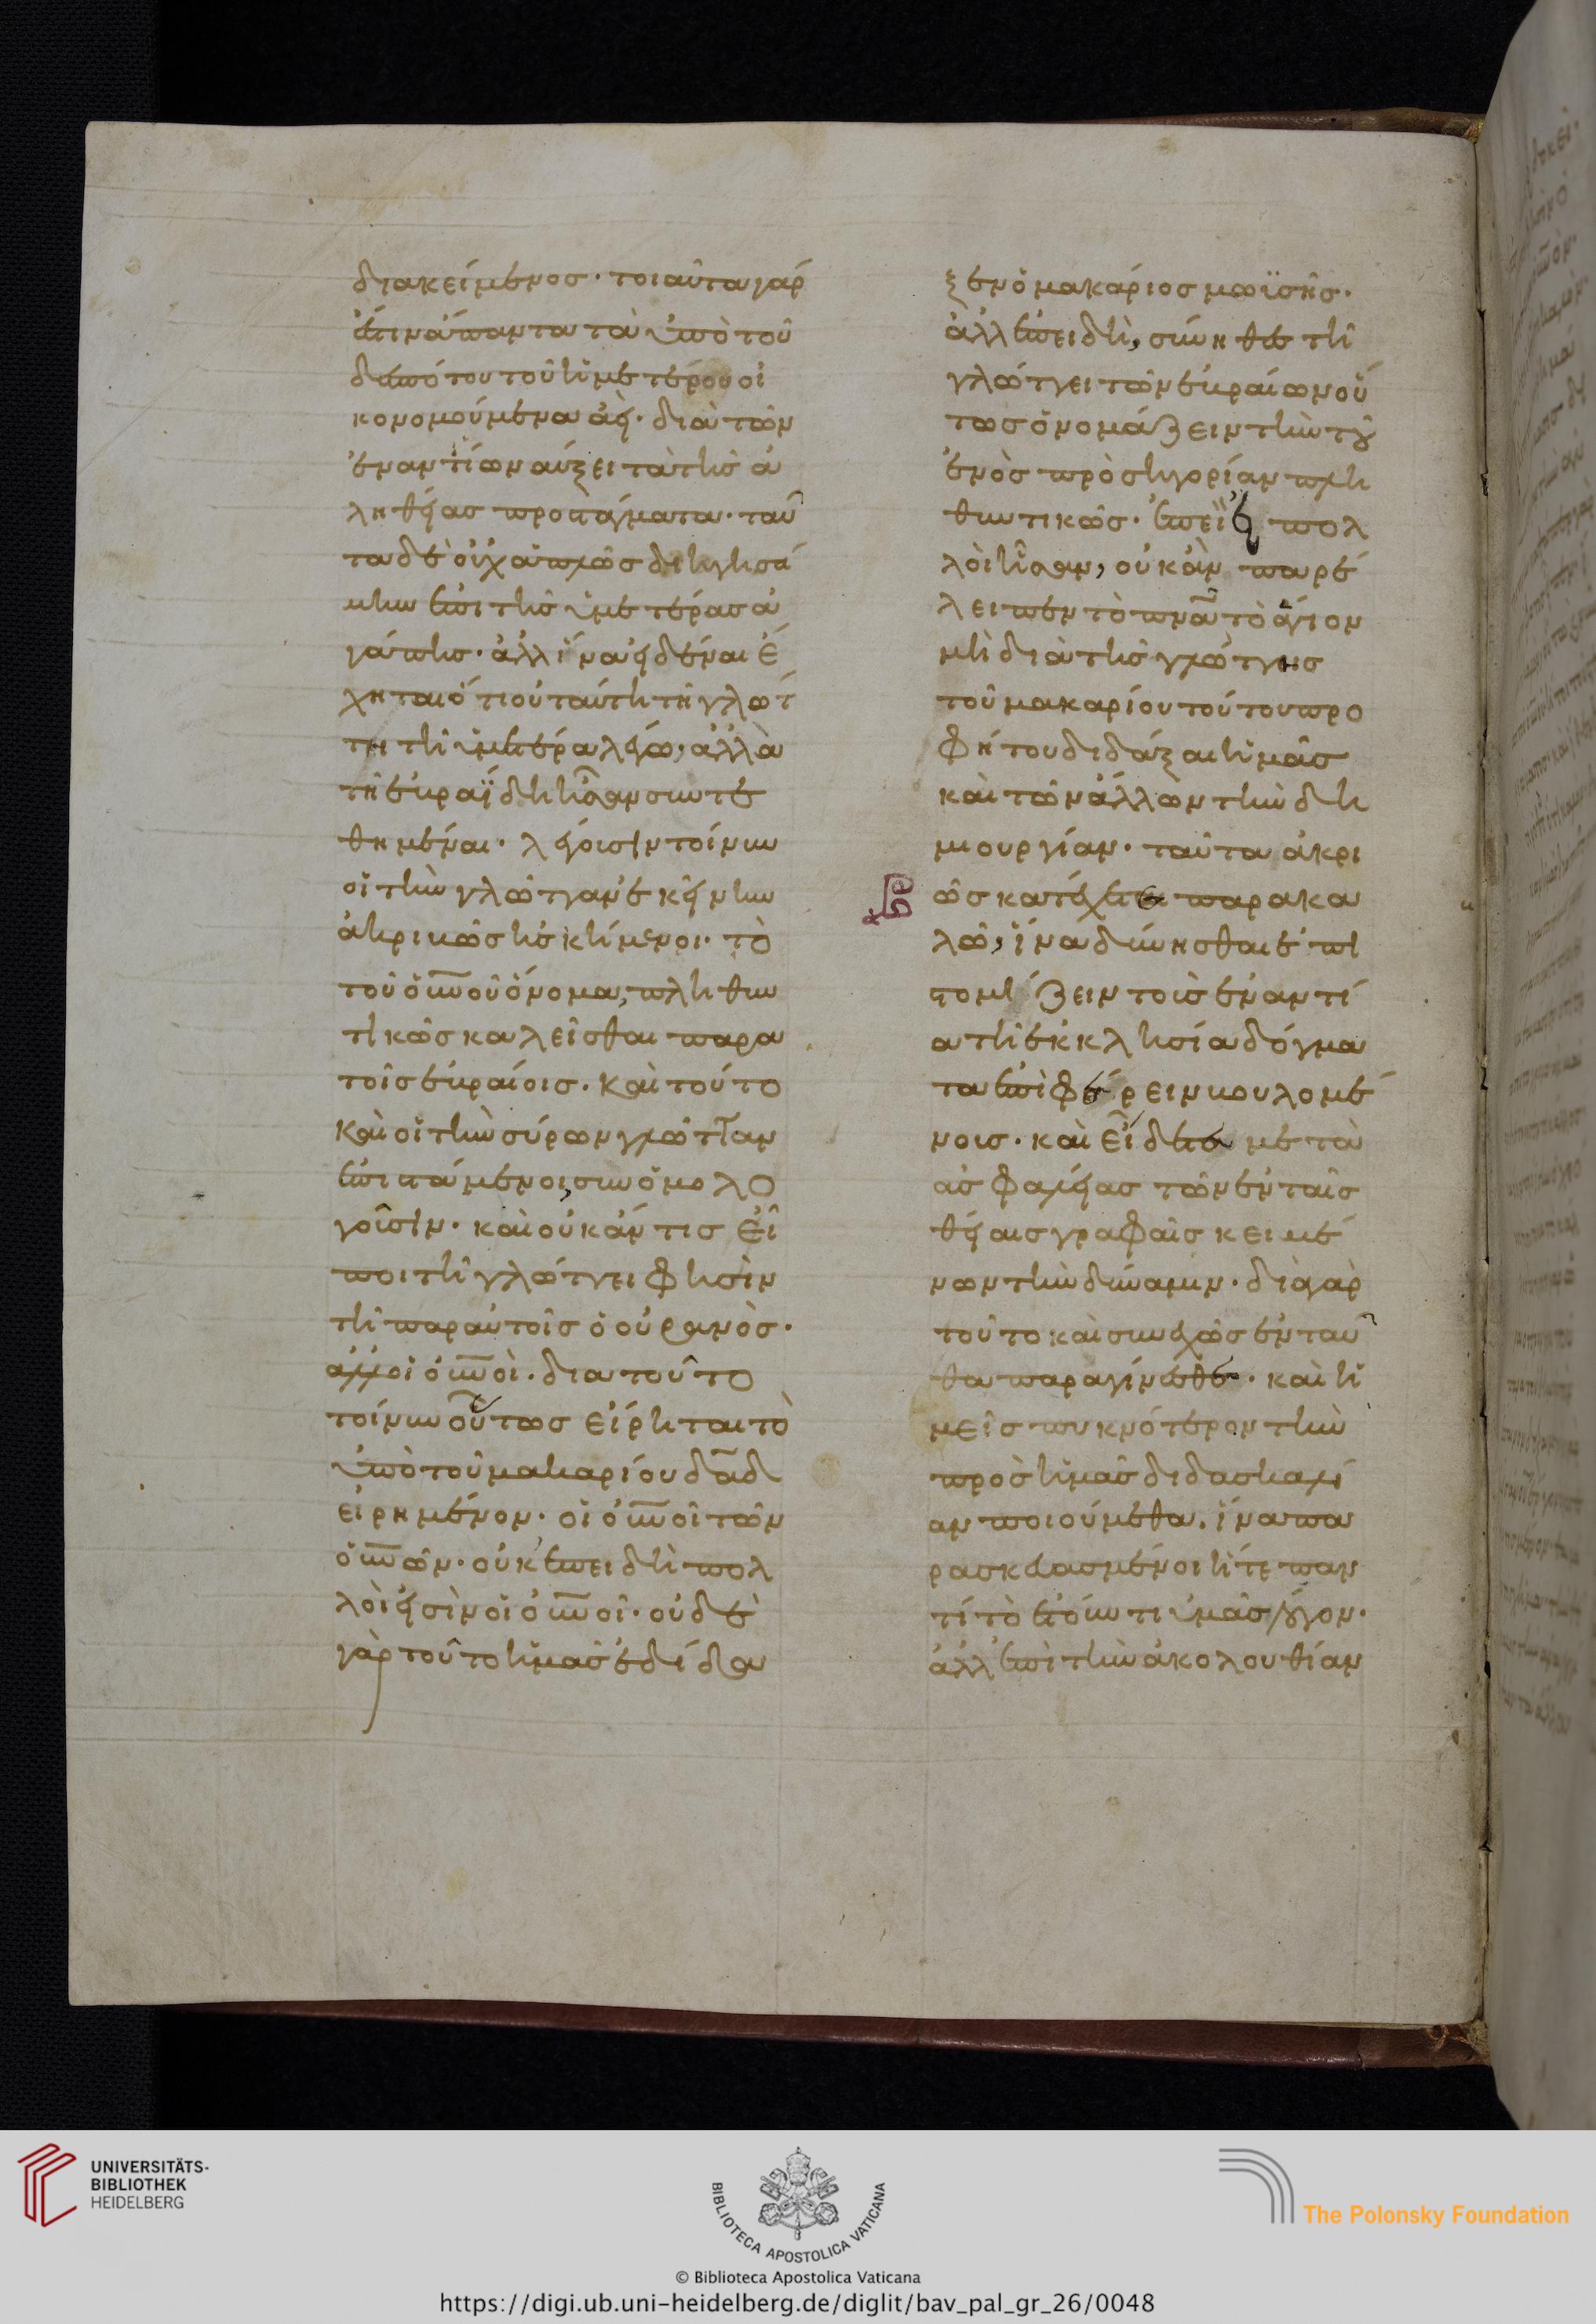 διακείμενος· τοιαῦτα γάρ
ἐστιν ἅπαντα τὰ ὑπὸ τοῦ
δεσπότου τοῦ ἡμετέρου οἰ
κονομούμενα ἀεί· διὰ τῶν
ἐναντίων αὔξει τὰ τῆς ἀ
ληθείας προστάγματα· ταῦ
τα δὲ οὐχ ἁπλῶς διηγησά
μην ἐπὶ τῆς ὑμετέρας ἀ
γάπης· ἀλλ ἵνα εἰδέναι ἔ
χηται ὅτι οὐ ταύτη τῆ γλώτ
τη τῆ ἡμετέρα λέγω, ἀλλὰ
τῆ ἑβραΐδι ἦσαν συντε
θημέναι· λέγουσιν τοίνυν
οἱ τὴν γλῶτταν ἐκείνην
ἀκριβῶς ἠσκημένοι· τὸ
τοῦ οὐνοῦ ὄνομα, πληθυν
τικῶς καλεῖσθαι παρα
τοῖς ἑβραίοις· καὶ τοῦτο
καὶ οἱ τὴν σύρων γλῶτταν
ἐπιστάμενοι, συνομολο
γοῦσιν· καὶ οὐκ ἄν τις εἴ
ποι τῆ γλώττει φησὶν
τῆ παραυτοῖς ὁ οὐρανὸς·
αλλ οἱ οὐνοὶ· δια τοῦτο
τοίνυν οὕτως εἴρηται τὸ
ὑπὸ τοῦ μακαρίου δαδ
εἰρημένον· οἱ οὐνοῖ τῶν
οὐνῶν· οὐκ ἐπειδὴ πολ
λοὶ εἰσὶν οἱ οὐνοῖ· οὐδὲ
γὰρ τοῦτο ἡμᾶς ἐδίδα
ξεν ὁ μακάριος μωϊσῆς·
ἀλλ ἐπειδὴ, σύνηθες τῆ
γλώττει τῶν ἑβραίων οὕ
τως ὀνομάζειν τὴν τοῦ
ἑνὸς προσηγορίαν πλη
θυντικῶς· ἐπεὶ εἰ πολ
λοὶ ἦσαν, οὐκ ἂν παρέ
λειπεν τὸ πνα τὸ ἅγιον
μὴ διὰ τῆς γλώττης
τοῦ μακαρίου τούτου προ
φήτου διδάξαι ἡμᾶς
καὶ τῶν ἄλλων τὴν δη
μιουργίαν· ταῦτα ἀκρι
βῶς κατέχειν παρακα
λῶ, ἵνα δύνησθαι ἐπι
στομίζειν τοὶς ἐναντί
α τῆ ἐκκλησία δόγμα
τα ἐπιφέρειν βουλομέ
νοις· καὶ εἰδέναι μετὰ
ἀσφαλείας τῶν ἐν ταῖς
θείαις γραφαῖς κειμέ
νων τὴν δύναμιν· διὰ γὰρ
τοῦτο καὶ συνεχῶς ἐνταῦ
θα παραγίνεσθε· καὶ ἡ
μεῖς πυκνότερον τὴν
πρὸς ἡμᾶς διδασκαλί
αν ποιούμεθα, ἵνα πα
ρασκευασμένοι ἦτε παν
τί τὸ αἰτοῦντι ὑμᾶς λόγον·
ἀλλ ἐπὶ τὴν ἀκολουθίαν
UNIVERSITÄTS-
BIBLIOTHEK
HEIDELBERG
BIBLIOTECA APOSTOLICA VATICANA
The Polonsky Foundation
© Biblioteca Apostolica Vaticana
https://digi.ub.uni-heidelberg.de/diglit/bav_pal_gr_26/0048